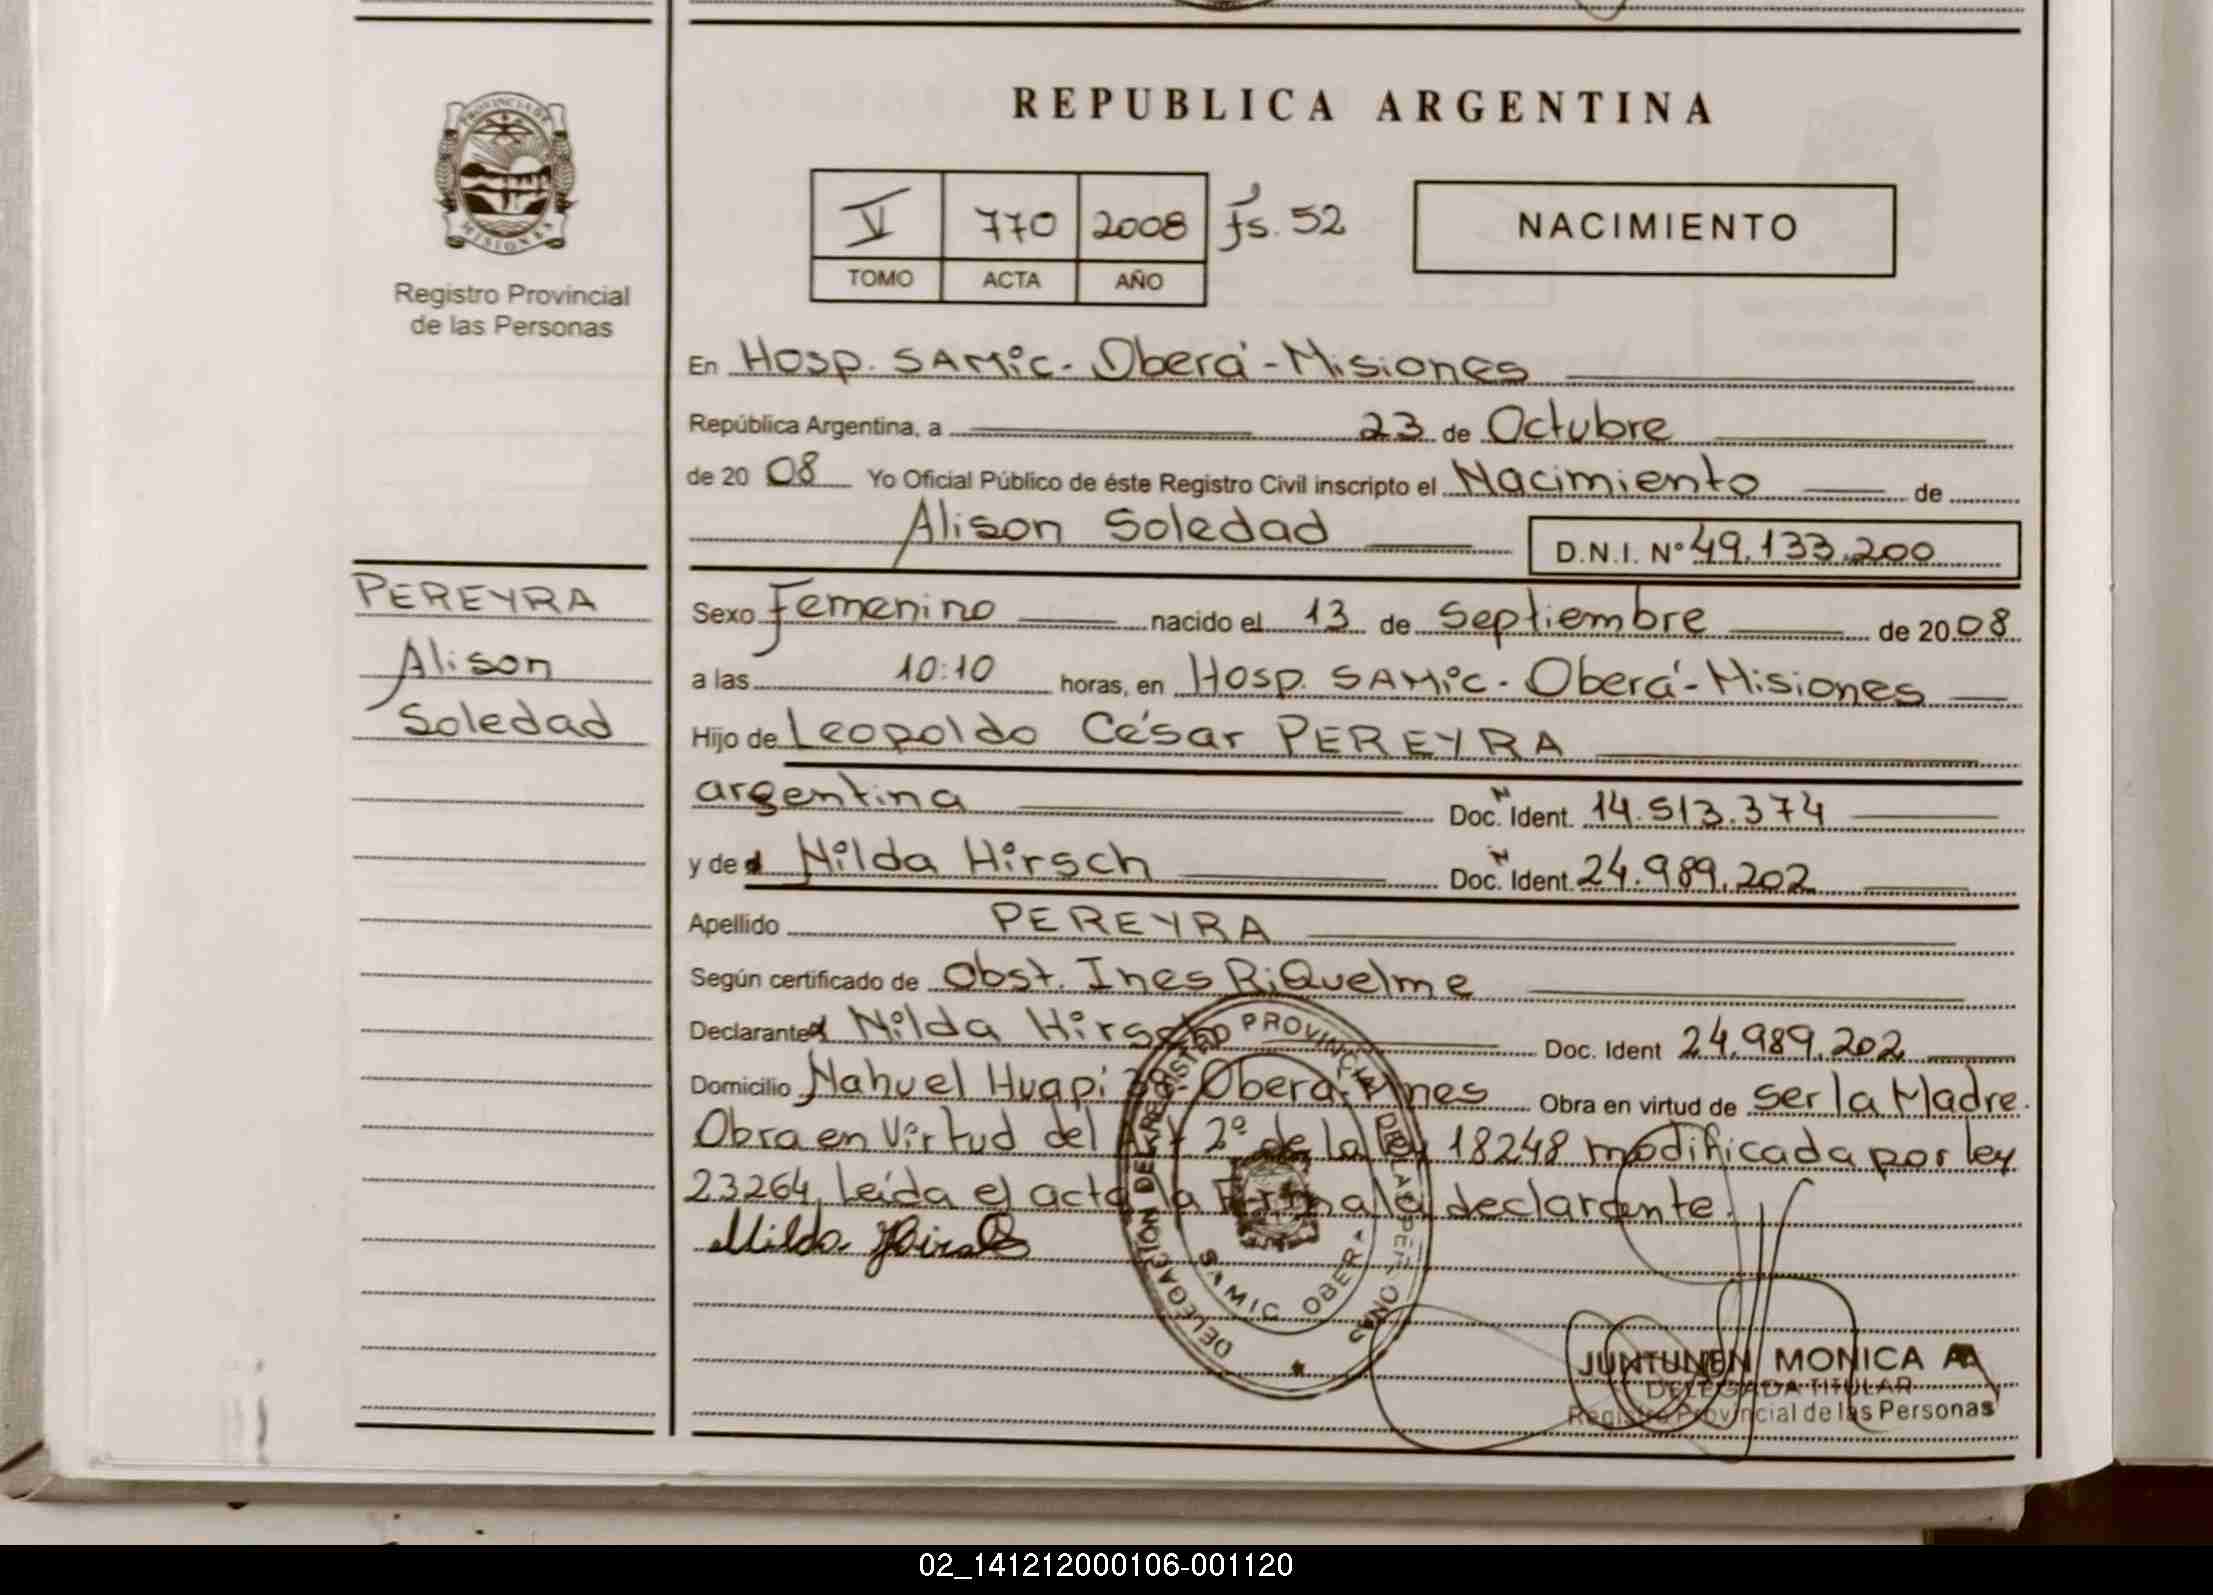 REPUBLICA ARGENTINA
PROVINCIA DE MISIONES
Registro Provincial
de las Personas
V 770 2008 fs. 52
TOMO ACTA AÑO
NACIMIENTO
En Hosp. SAMiC. Oberá - Misiones
República Argentina, a 23 de Octubre
de 20 08 Yo Oficial Público de éste Registro Civil inscripto el Nacimiento de
Alison Soledad D.N.I. Nº 49.133.200
PEREYRA
Alison
Soledad
Sexo Femenino nacido el 13 de Septiembre de 20 08
a las 10:10 horas, en Hosp. SAMiC. Oberá - Misiones
Hijo de Leopoldo César PEREYRA
argentina Doc. N Ident. 14.513.374
y de Nilda Hirsch Doc. N Ident. 24.989.202
Apellido PEREYRA
Según certificado de Obst. Ines RiQuelme
Declarante Nilda Hirsch Doc. Ident 24.989.202
Domicilio Nahuel Huapi Oberá. Mnes Obra en virtud de ser la Madre.
Obra en Virtud del Art 2º de la ley 18248 modificada por ley
23264, Leída el acta la Firma la declarante.
Nilda Hirsch
DELEGACIÓN DEL REGISTRO PROVINCIAL DE LAS PERSONAS
SAMIC OBERA
JUNTUNEN MONICA A
DELEGADA TITULAR
Registro Provincial de las Personas
02_141212000106-001120